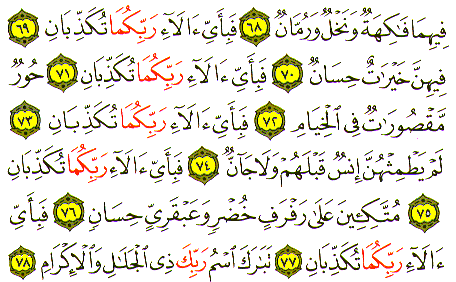 فِيهِمَا فَٰكِهَةٌ وَنَخْلٌ وَرُمَّانٌ ٦٨ فَبِأَيِّ ءَالَآءِ رَبِّكُمَا تُكَذِّبَانِ ٦٩
فِيهِنَّ خَيْرَٰتٌ حِسَانٌ ٧٠ فَبِأَيِّ ءَالَآءِ رَبِّكُمَا تُكَذِّبَانِ ٧١ حُورٌ
مَّقْصُورَٰتٌ فِي ٱلْخِيَامِ ٧٢ فَبِأَيِّ ءَالَآءِ رَبِّكُمَا تُكَذِّبَانِ ٧٣
لَمْ يَطْمِثْهُنَّ إِنسٌ قَبْلَهُمْ وَلَا جَآنٌّ ٧٤ فَبِأَيِّ ءَالَآءِ رَبِّكُمَا تُكَذِّبَانِ
٧٥ مُتَّكِـِٔينَ عَلَىٰ رَفْرَفٍ خُضْرٍ وَعَبْقَرِيٍّ حِسَانٍ ٧٦ فَبِأَيِّ
ءَالَآءِ رَبِّكُمَا تُكَذِّبَانِ ٧٧ تَبَٰرَكَ ٱسْمُ رَبِّكَ ذِي ٱلْجَلَٰلِ وَٱلْإِكْرَامِ ٧٨